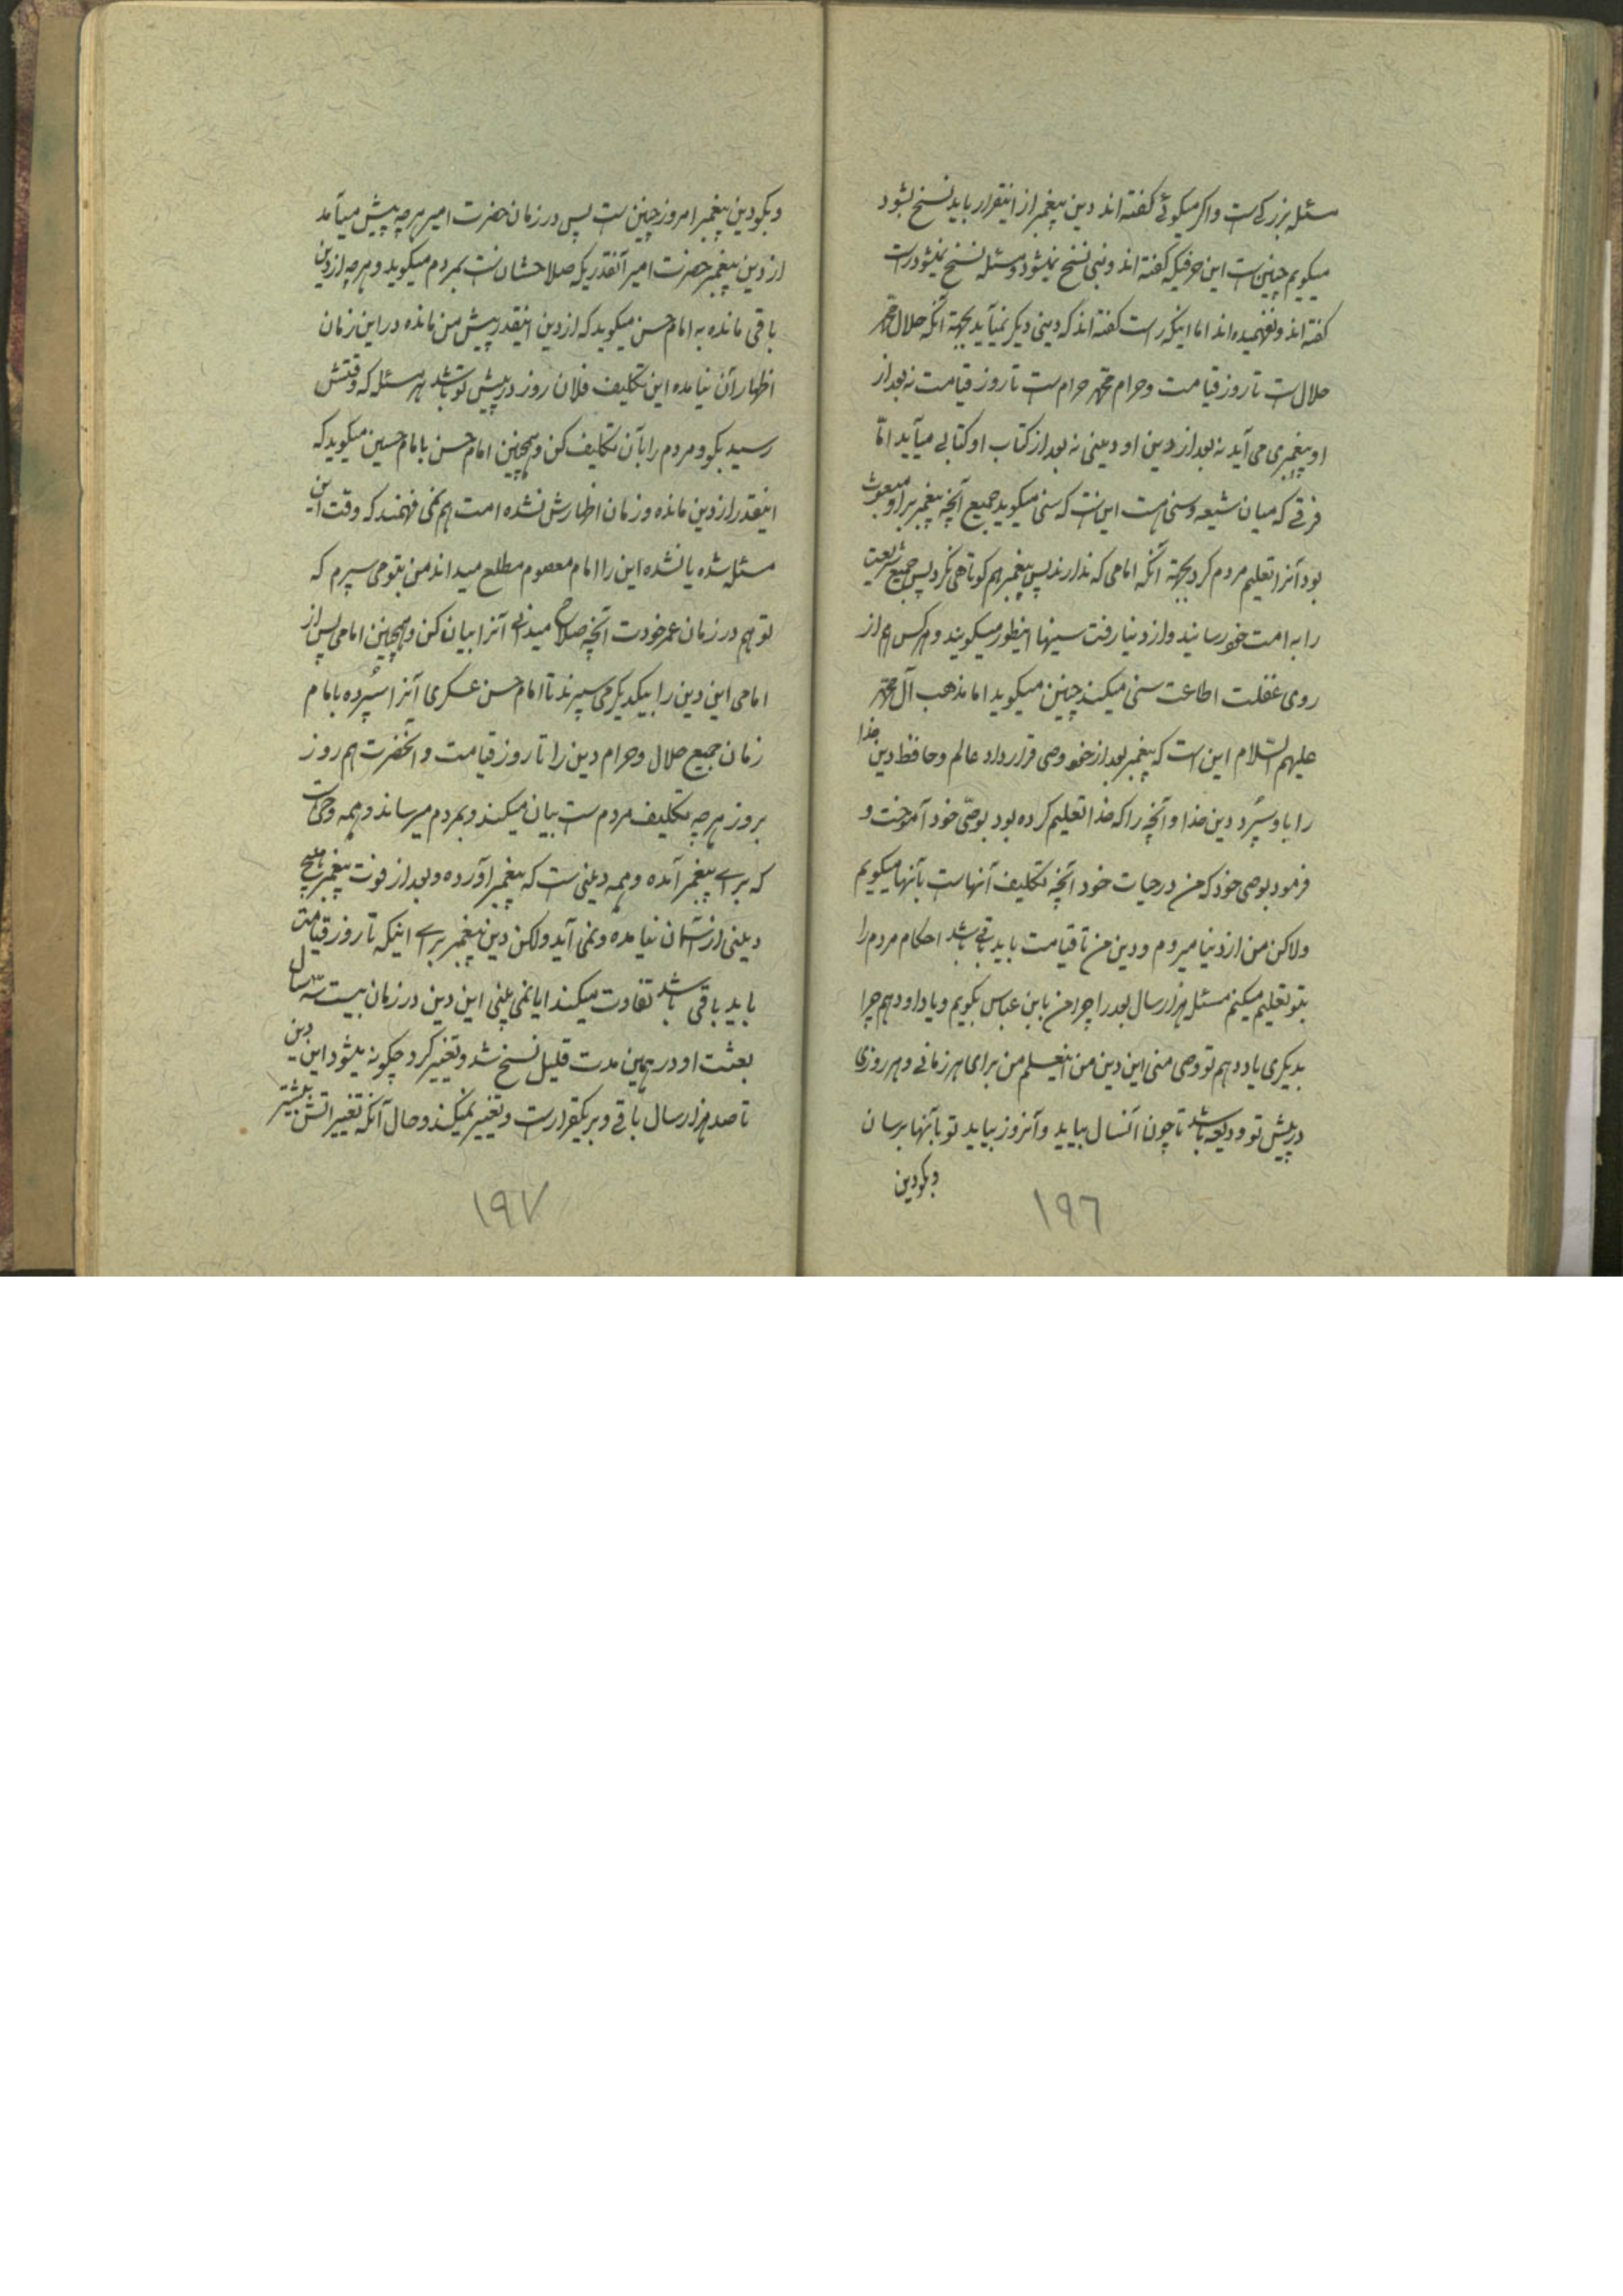 مسئله بزرگی است و اگر میگوئے گفته اند دین پیغمبر از اینقرار باید نسخ بشود
میگویم چنین است این حرفیکه گفته اند و نبی نسخ نمیشود و مسئله نسخ نمیشود راست
گفته اند و نفهمیده اند اما اینکه راست گفته اند که دینی دیگر نمیآید بجهة آنکه حلال محمد
حلال است تا روز قیامت و حرام محمد حرام است تا روز قیامت نه بعد از
او پیغمبری می آید نه بعد از دین او دینی نه بعد از کتاب او کتابی میآید امّا
فرقے که میان شیعه و سنی هست این است که سنی میگوید جمیع آنچه پیغمبر بر او مبعوث
بود آنرا تعلیم مردم کرد بجهة آنکه امامی که ندارند پس پیغمبر هم کوتاهی نکرد پس جمیع شریعت
را به امت خود رسانید و از دنیا رفت سنیها اینطور میگویند و هر کس هم از
روی غفلت اطاعت سنی میکند چنین میگوید اما مذهب آل محمد
علیهم السّلام این است که پیغمبر بعد از خود وصی قرار داد عالم و حافظ دین خدا
را باو سپرد دین خدا و آنچه را که خدا تعلیم کرده بود بوصّی خود آموخت و
فرمود بوصی خود که من در حیات خود آنچه تکلیف آنهاست بآنها میگویم
ولاکن من از دنیا میروم و دین من تا قیامت باید باقی باشد احکام مردم را
بتو تعلیم میکنم مسئله هزار سال بعد را چرا من بابن عباس بگویم و یاد او دهم چرا
بدیگری یاد دهم تو وصی منی این دین من اینعلم من برای هر زمانے و هر روزی
در پیش تو ودیعه باشد تا چون آنسال بیاید و آنروز بیاید تو بآنها برسان
و بگو دین
۱۹۶
و بگو دین پیغمبر امروز چنین است پس در زمان حضرت امیر هر چه پیش میآمد
از دین پیغمبر حضرت امیر آنقدریکه صلاحشان است بمردم میگوید و هر چه از دین
باقی مانده به امام حسن میگوید که از دین اینقدر پیش من مانده در این زمان
اظهار آن نیامده این تکلیف فلان روز در پیش تو باشد هر مسئله که وقتش
رسید بگو و مردم را بآن تکلیف کن و همچنین امام حسن بامام حسین میگوید که
اینقدر از دین مانده و زمان اظهارش نشده امت هم نمی فهمند که وقت این
مسئله شده یا نشده این را امام معصوم مطلع میداند من بتو می سپرم که
تو هم در زمان عمر خودت آنچه صلاح میدانی آنرا بیان کن و همچنین امامی پس از
امامی این دین را بیکدیگر می سپرند تا امام حسن عسکری آنرا سپرده بامام
زمان جمیع حلال و حرام دین را تا روز قیامت و آنحضرت هم روز
بروز هر چه تکلیف مردم است بیان میکند و بمردم میرساند و همه وحی است
که برای پیغمبر آمده و همه دینی است که پیغمبر آورده و بعد از فوت پیغمبر ما هیچ
دینی از آسمان نیامده و نمی آید ولاکن دین پیغمبر برای اینکه تا روز قیامت
باید باقی باشد تفاوت میکند ایا نمی بینی این دین در زمان بیست سه سال
بعثت او در همین مدت قلیل نسخ شد و تغییر کرد چگونه میشود این دین
تا صد هزار سال باقی و بر یکقرار است و تغییر نمیکند و حال آنکه تغییراتش بیشتر
۱۹۷